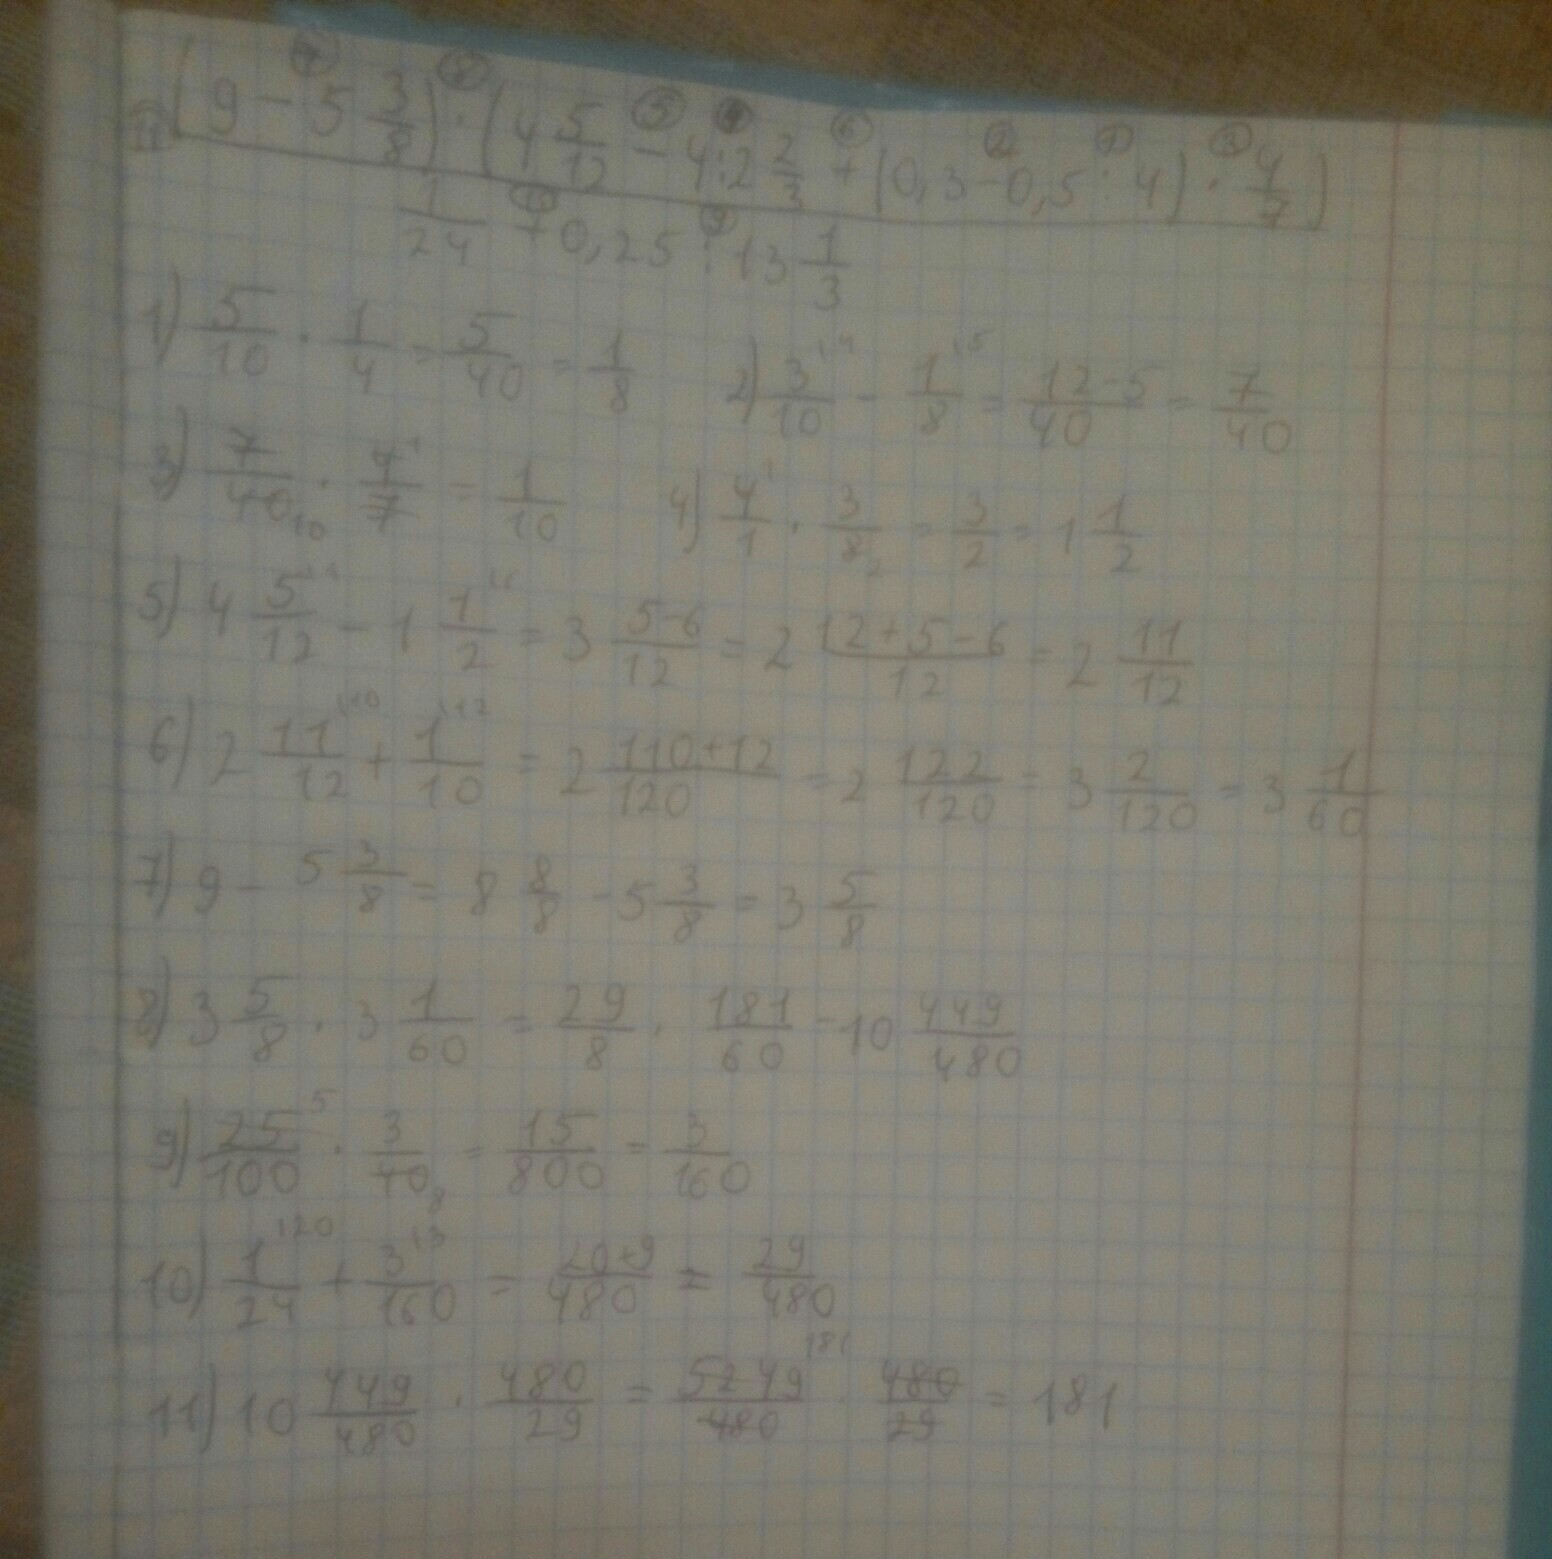 (9 - 5 3/8) · (4 5/12 - 4 : 2 2/3 + (0,3 - 0,5 : 4) · 4/7)
1/24 + 0,25 : 13 1/3
1) 5/10 · 1/4 = 5/40 = 1/8 2) 3/10 - 1/8 = 12-5/40 = 7/40
3) 7/40 · 4/7 = 1/10 4) 4/1 · 3/8 = 3/2 = 1 1/2
5) 4 5/12 - 1 1/2 = 3 5-6/12 = 2 12+5-6/12 = 2 11/12
6) 2 11/12 + 1/10 = 2 110+12/120 = 2 122/120 = 3 2/120 = 3 1/60
7) 9 - 5 3/8 = 8 8/8 - 5 3/8 = 3 5/8
8) 3 5/8 · 3 1/60 = 29/8 · 181/60 = 10 449/480
9) 25/100 · 3/40 = 15/800 = 3/160
10) 1/24 + 3/160 = 20+9/480 = 29/480
11) 10 449/480 · 480/29 = 5249/480 · 480/29 = 181